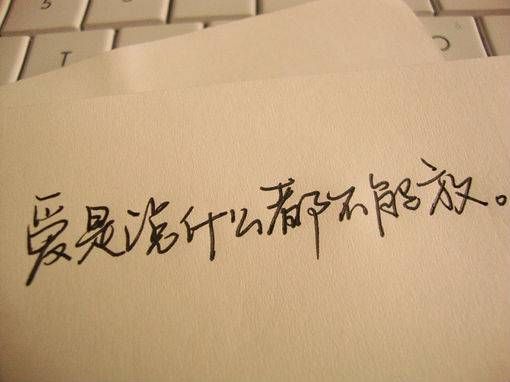 爱是说什么都不能放。